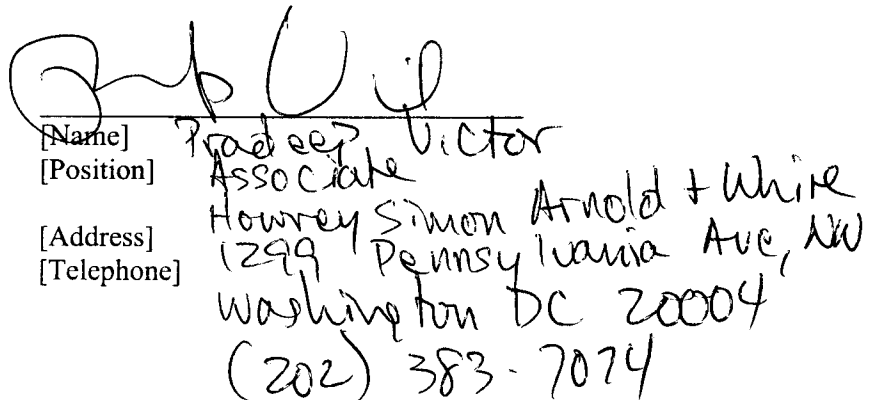 [Name] Pradeep Victor
[Position] Associate
Howrey Simon Arnold + White
[Address] 1299 Pennsylvania Ave, NW
[Telephone]
Washington DC 20004
(202) 383-7074